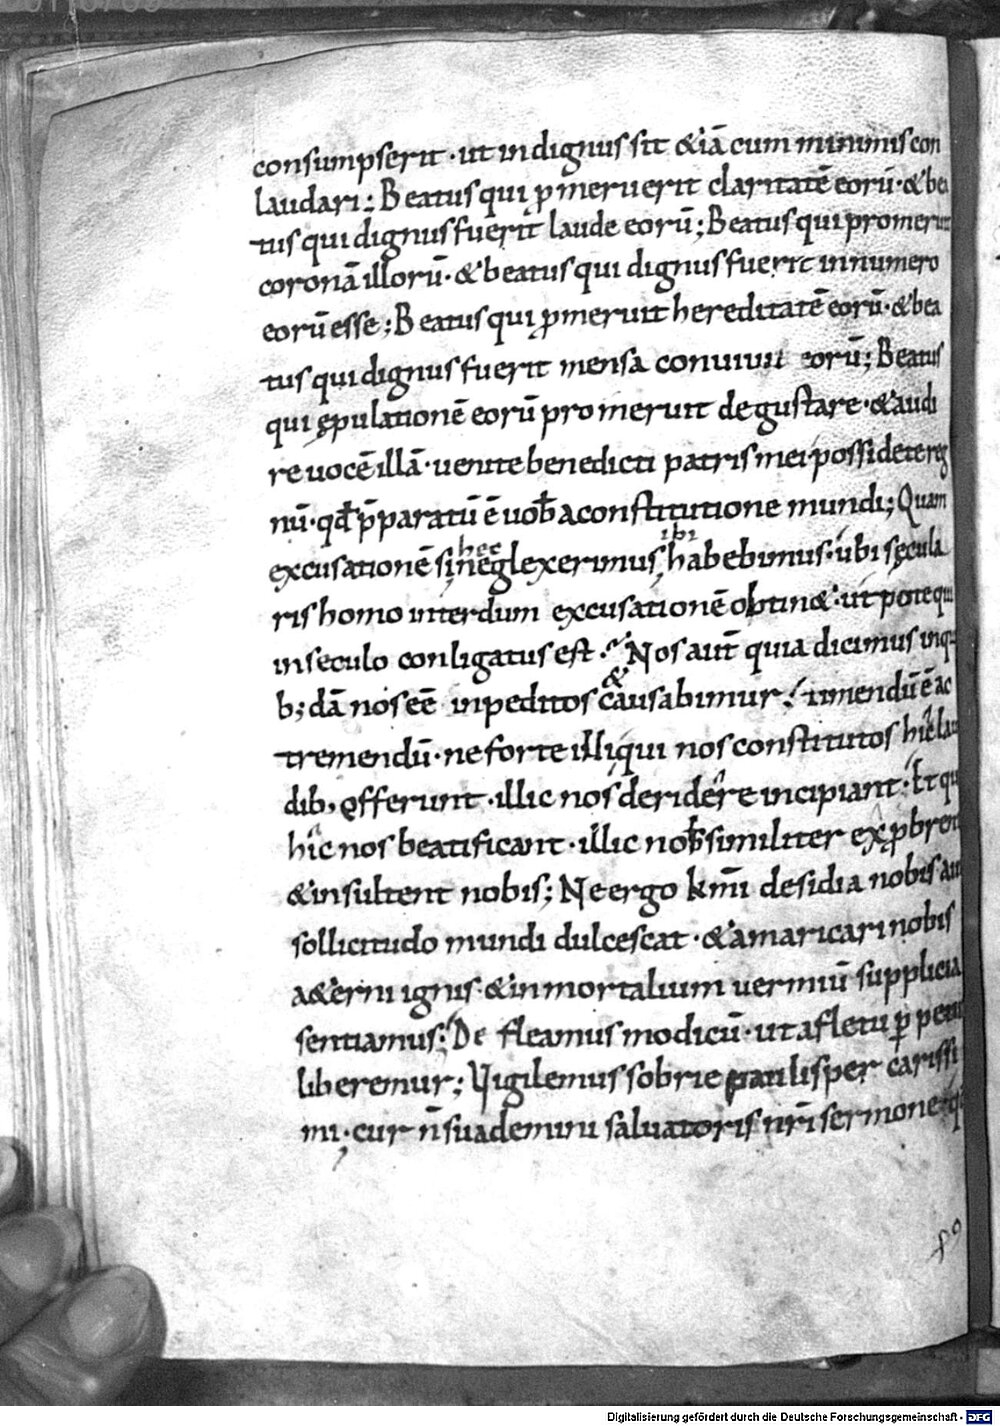 consumpserit · ut indignus sit &iā cum minimis con
laudari; Beatus qui ꝓmeruerit claritatē eorū · & bea
tus qui dignus fuerit laude eorū; Beatus qui promerue
coronā illorū · & beatus qui dignus fuerit in numero
eorū esse; Beatus qui ꝓmeruit hereditatē eorū · & bea
tus qui dignus fuerit mensa conuiuii eorū; Beatus
qui ępulationē eorū promeruit degustare · & audi
re uocē illā · uenite benedicti patris mei possidete reg
nū · qđ p̄paratū ē uob̄ a constitutione mundi; Quam
excusationē si hec neglexerimus ibi habebimus · ubi sęcula
ris homo interdum excusationē obtin& · ut pote qui
in seculo conligatus est · Nos aut̄ quia dicimus in qui
b; dā nos eē inpeditos & causabimur · timendū ē ac
tremendū · ne forte illi qui nos constitutos hic lau
dib, offerunt · illic nos deridere incipiant · Et qui
hic nos beatificant · illic nob̄ similiter exꝓbrent
& insultent nobis; Ne ergo kmī desidia nobis aut
sollicitudo mundi dulcescat · & amaricari nobis
a&erni ignis · & inmortalium uermiū supplicia
sentiamus; Defleamus modicū · ut a fletu ꝑpetuo
liberemur; Vigilemus sobrie paulisper carissi
mi · cur n̄ suademini saluatoris nr̄i sermone · q